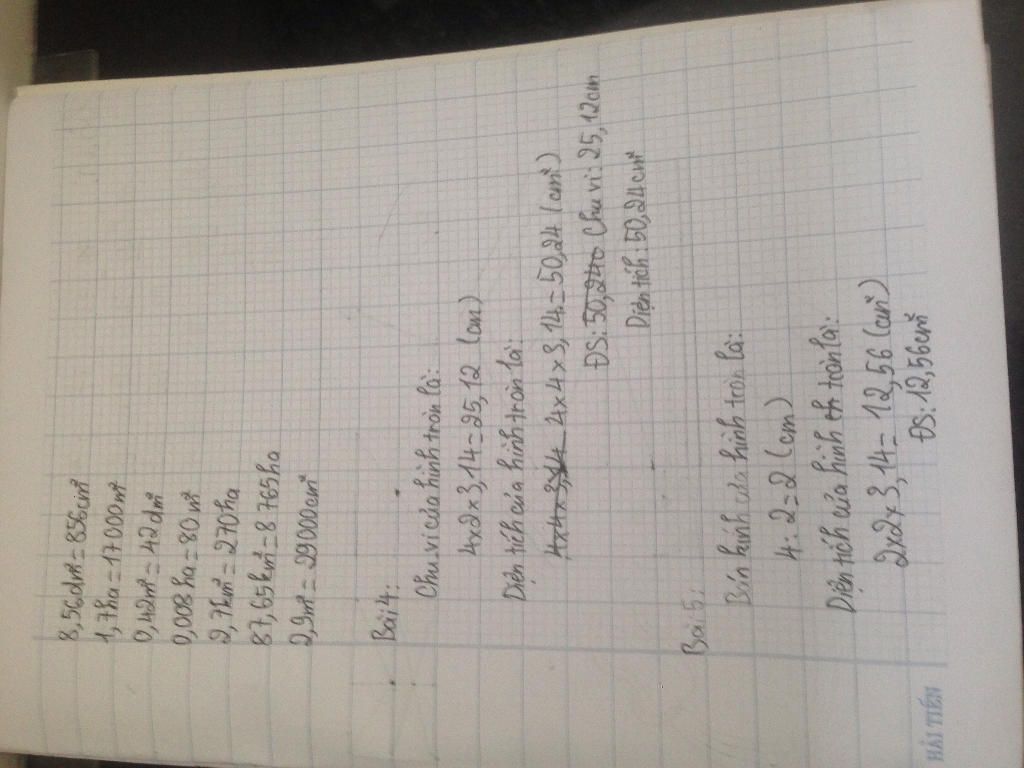 8,56dm² = 856cm²
1,7ha = 17000m²
0,42m² = 42dm²
0,008ha = 80m²
2,7km² = 270ha
87,65km² = 8765ha
2,9m² = 29000cm²
Bài 4:
Chu vi của hình tròn là:
4x2x3,14 = 25,12 (cm)
Diện tích của hình tròn là:
4x4x3,14 4x4x3,14 = 50,24 (cm²)
ĐS: 50,240 Chu vi: 25,12cm
Diện tích: 50,24cm²
Bài 5:
Bán kính của hình tròn là:
4 : 2 = 2 (cm)
Diện tích của hình tròn là:
2x2x3,14 = 12,56 (cm²)
ĐS: 12,56cm²
HẢI TIẾN